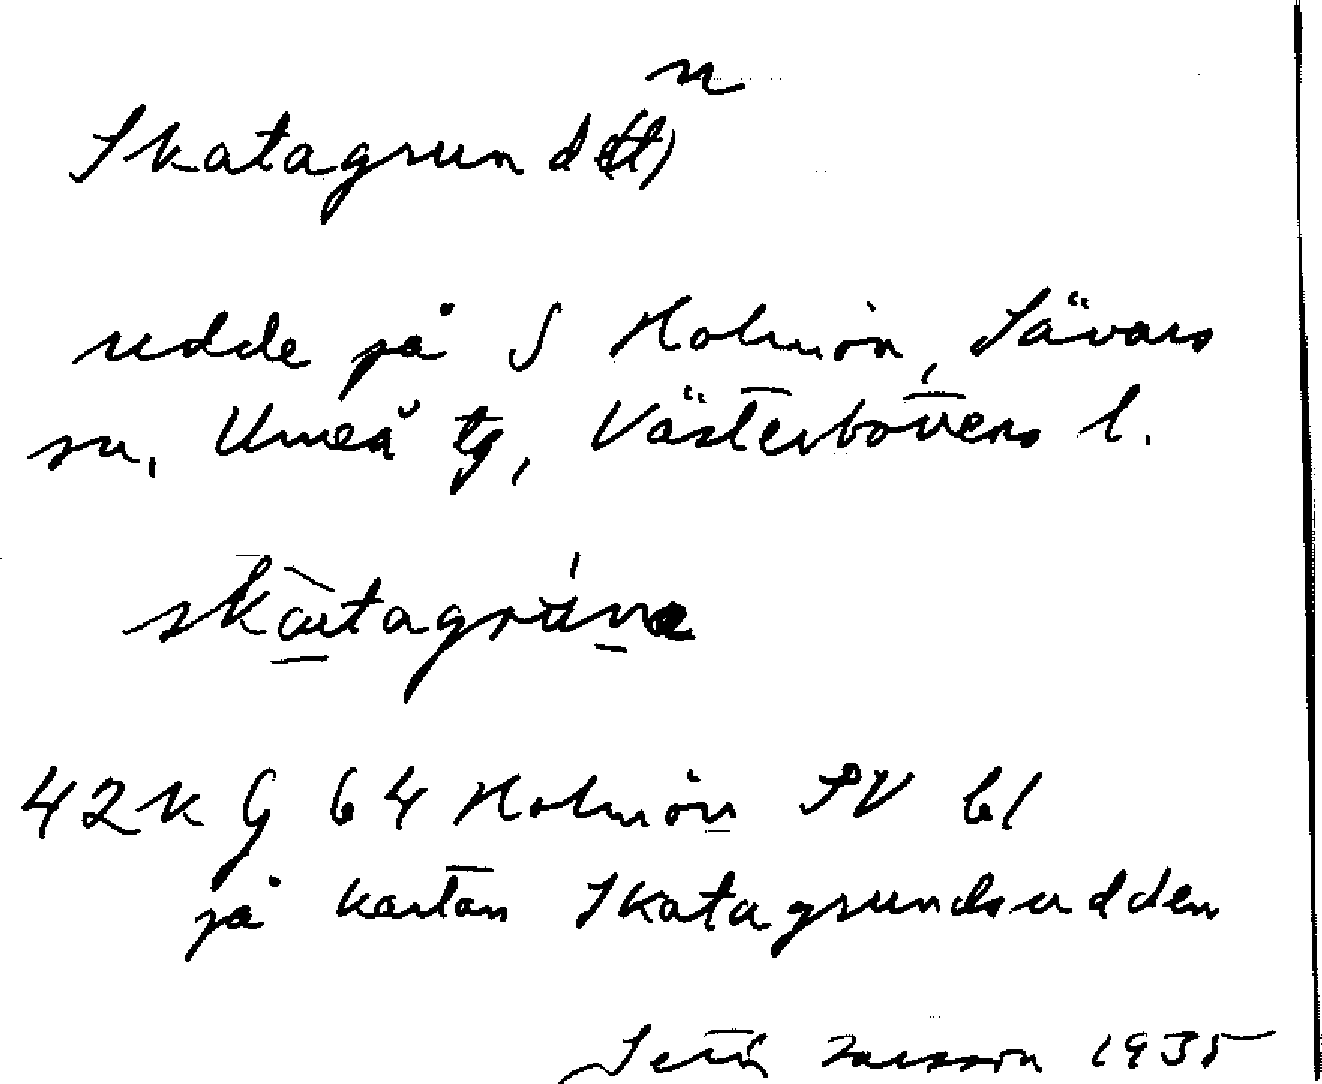 n
Skatagrund(et)
udde på S Holmön, Sävars
sn, Umeå tg, Västerbottens l.
42K G 64 Holmön SV bl
på kartan Skatagrundsudden
Seth Larsson 1935